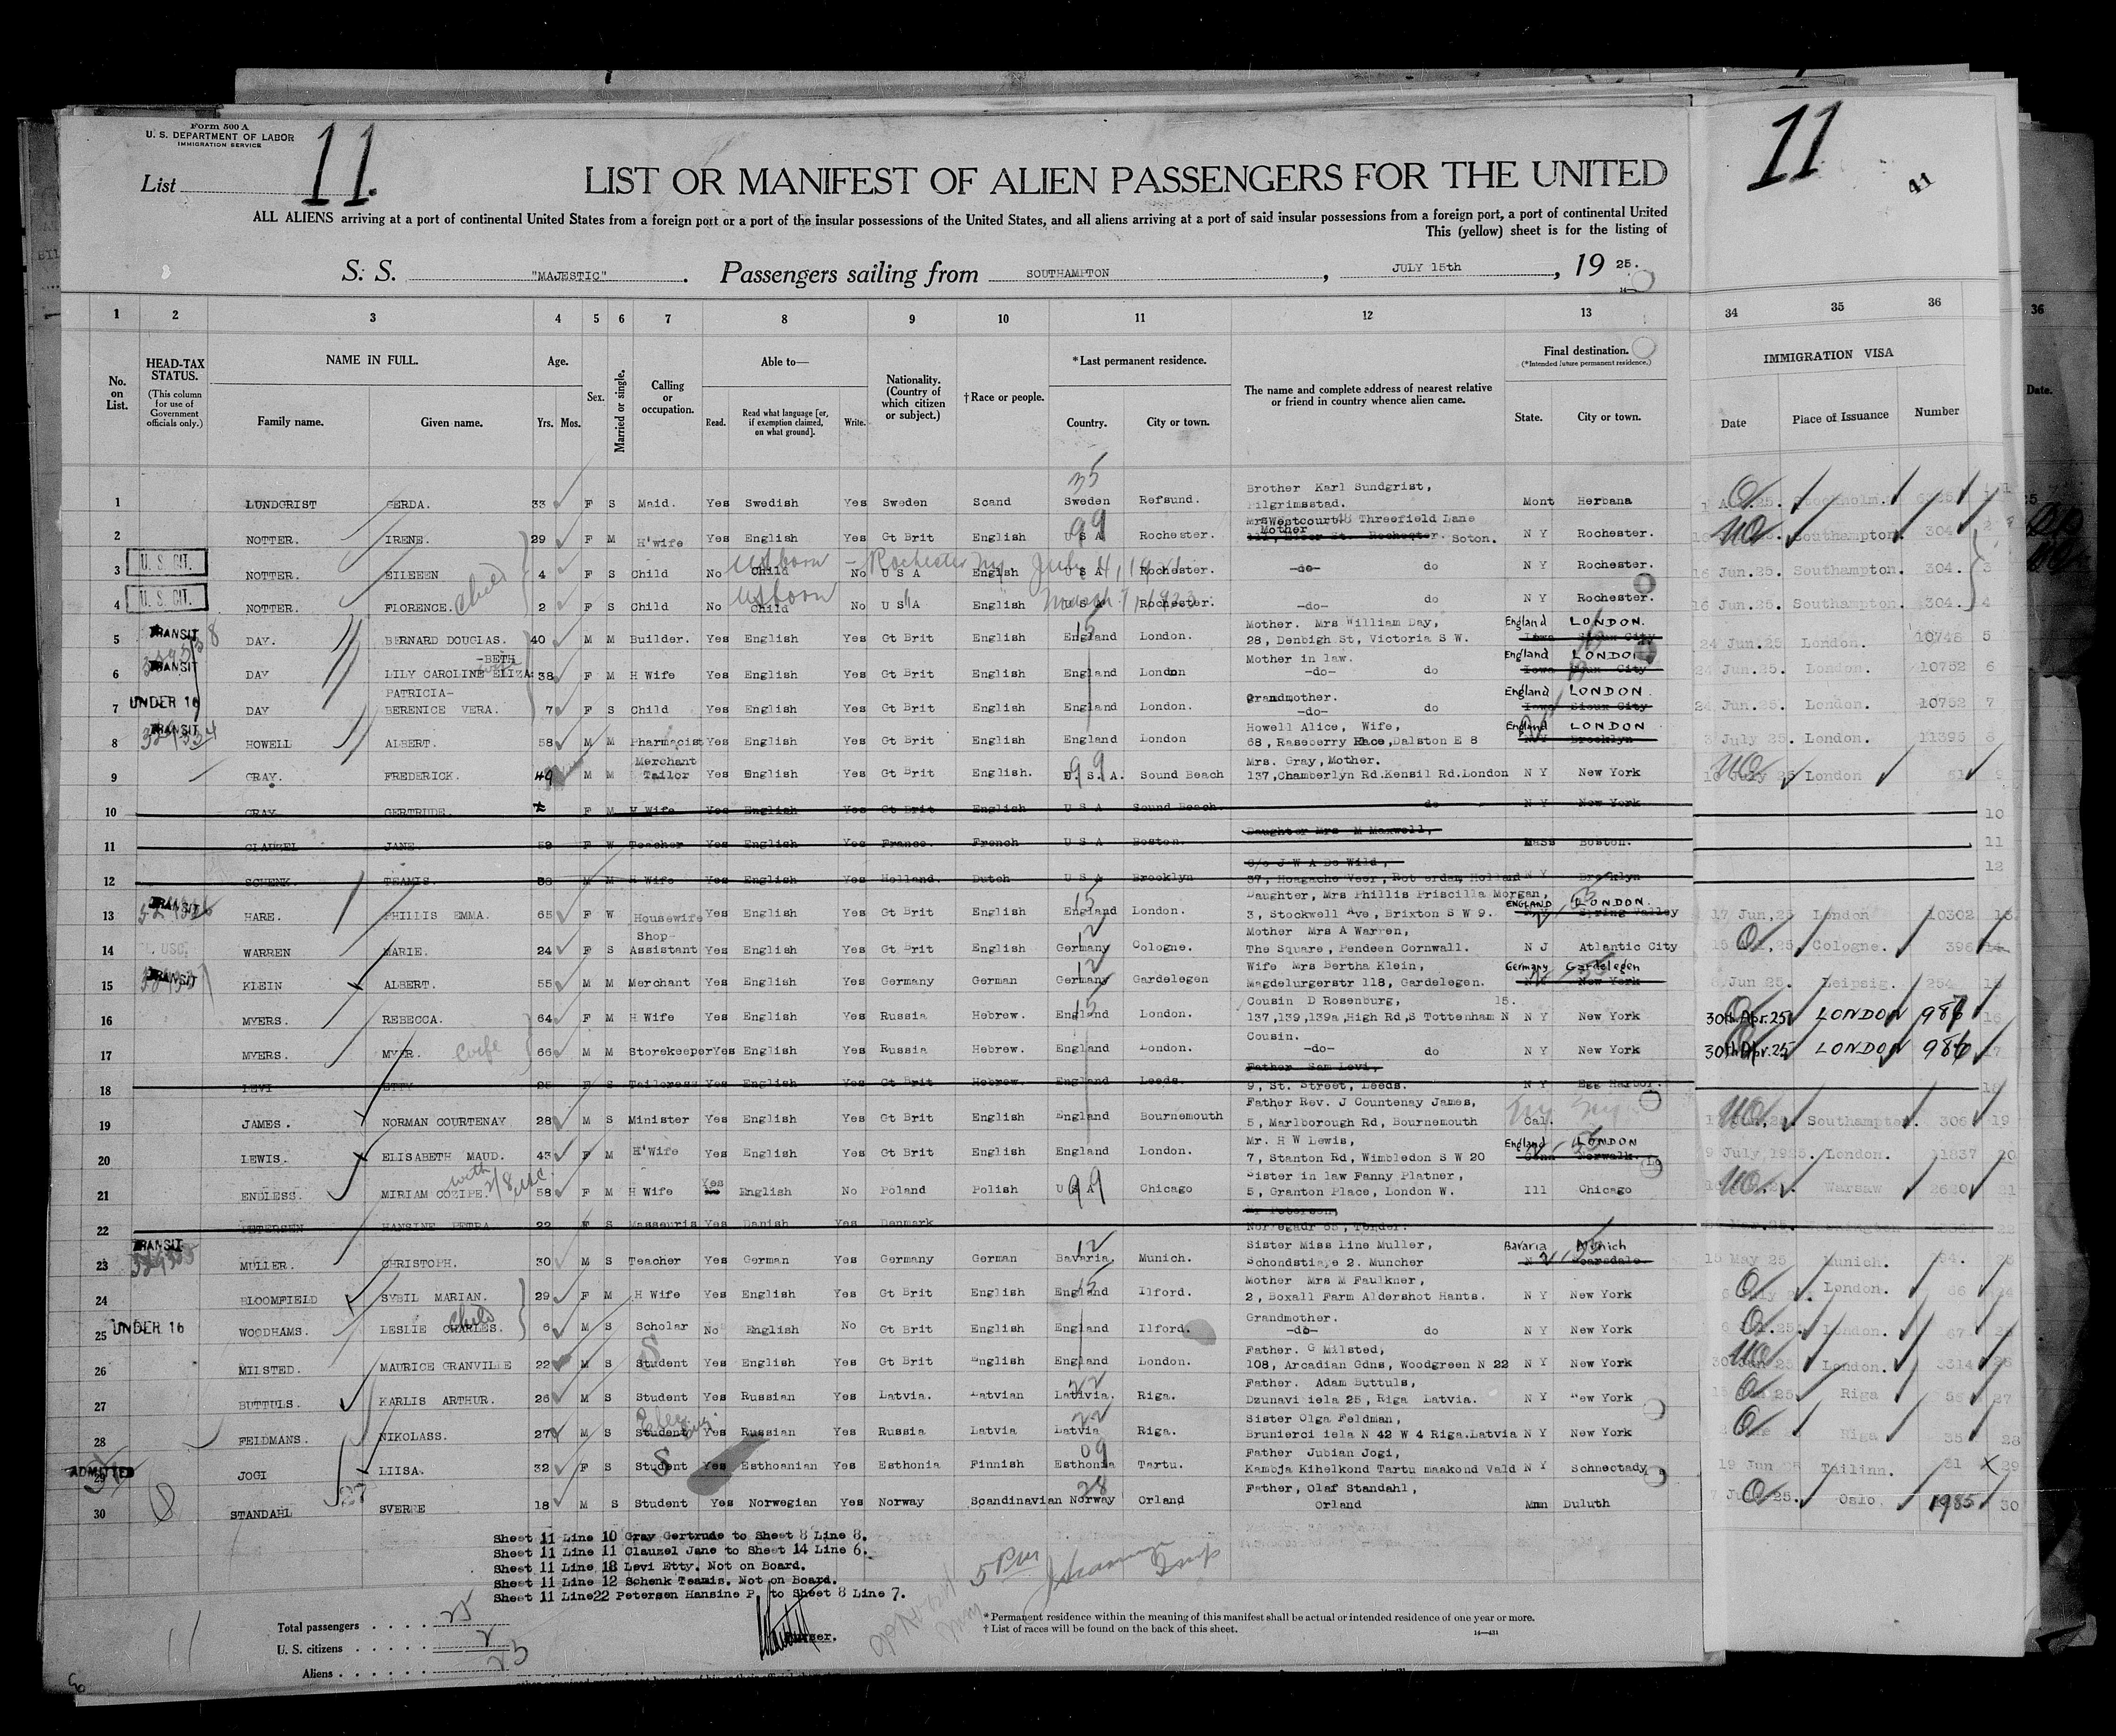 Form 500 A
U. S. DEPARTMENT OF LABOR
IMMIGRATION SERVICE
List 11.
11
41
LIST OR MANIFEST OF ALIEN PASSENGERS FOR THE UNITED
ALL ALIENS arriving at a port of continental United States from a foreign port or a port of the insular possessions of the United States, and all aliens arriving at a port of said insular possessions from a foreign port, a port of continental United
This (yellow) sheet is for the listing of
S. S. "MAJESTIC". Passengers sailing from SOUTHAMPTON, JULY 15th, 19 25.
1 2 3 4 5 6 7 8 9 10 11 12 13 34 35 36 36
No. on List. HEAD-TAX STATUS. (This column for use of Government officials only.) NAME IN FULL. Family name. Given name. Age. Yrs. Mos. Sex. Married or single. Calling or occupation. Able to— Read. Read what language [or, if exemption claimed, on what ground]. Write. Nationality. (Country of which citizen or subject.) †Race or people. *Last permanent residence. Country. City or town. The name and complete address of nearest relative or friend in country whence alien came. Final destination. (*Intended future permanent residence.) State. City or town. IMMIGRATION VISA Date Place of Issuance Number Date.
35
Brother Karl Sundgrist,
1 LUNDGRIST GERDA. 33 F S Maid. Yes Swedish Yes Sweden Scand Sweden Refsund. Pilgrimsstad. Mont Herbana Stockholm. 1
99 Mrs Westcourt 48 Threefield Lane
2 NOTTER. IRENE. 29 F M H'wife Yes English Yes Gt Brit English U S A Rochester. Mother Soton. N Y Rochester. Southampton. 304. 2
U. S. CIT. US born - Rochester NY July 4,
3 NOTTER. EILEEEN 4 F S Child No Child No U S A English U S A Rochester. -do- do N Y Rochester. 16 Jun.25. Southampton. 304. 3
U. S. CIT. Child US born
4 NOTTER. FLORENCE. 2 F S Child No Child No U S A English U S A Rochester. -do- do N Y Rochester. 16 Jun.25. Southampton. 304. 4
TRANSIT 15 Mother. Mrs William Day, England LONDON.
5 DAY. BERNARD DOUGLAS. 40 M M Builder. Yes English Yes Gt Brit English England London. 28, Denbigh St, Victoria S W. Iowa Sioux City 24 Jun.25 London. 10748 5
TRANSIT -BETH Mother in law. England LONDON
6 DAY LILY CAROLINE ELIZA- 38 F M H Wife Yes English Yes Gt Brit English England London -do- do Iowa Sioux City 24 Jun.25. London. 10752 6
UNDER 16 PATRICIA- Grandmother. England LONDON.
7 DAY BERENICE VERA. 7 F S Child Yes English Yes Gt Brit English England London. -do- do Iowa Sioux City 24 Jun.25. London. 10752 7
TRANSIT Howell Alice, Wife, England LONDON
8 HOWELL ALBERT. 58 M M Pharmacist Yes English Yes Gt Brit English England London 68, Raseberry Place, Dalston E 8 N Y Brooklyn 3 July 25. London. 11395 8
Merchant 99 Mrs. Gray, Mother.
9 GRAY. FREDERICK. 49 M M Tailor Yes English Yes Gt Brit English. U.S.A. Sound Beach 137,Chamberlyn Rd.Kensil Rd.London N Y New York July 25 London 9
10 GRAY GERTRUDE. F M H Wife Yes English Yes Gt Brit English U S A Sound Beach. do N Y New York 10
Daughter Mrs M Maxwell,
11 CLAUZEL JANE. 59 F W Teacher Yes English Yes France. French U S A Boston. Mass Boston. 11
C/o J W A De Wild,
12 SCHENK. TEAMIS. 38 M M H Wife Yes English Yes Holland. Dutch U S A Brooklyn 37, Hoagache Veer, Rotterdam, Holland N Y Brooklyn 12
TRANSIT 15 Daughter, Mrs Phillis Priscilla Morgan, ENGLAND LONDON.
13 HARE. PHILLIS EMMA. 65 F W Housewife Yes English Yes Gt Brit English England London. 3, Stockwell Ave, Brixton S W 9. N Y Spring Valley 17 Jun,25 London 10302 13
Shop- 12 Mother Mrs A Warren,
14 WARREN MARIE. 24 F S Assistant Yes English Yes Gt Brit English Germany Cologne. The Square, Pendeen Cornwall. N J Atlantic City Cologne. 396 14
TRANSIT 12 Wife Mrs Bertha Klein, Germany Gardelegen
15 KLEIN ALBERT. 55 M M Merchant Yes English Yes Germany German Germany Gardelegen Magdelurgerstr 118, Gardelegen. N Y New York Jun 25. Leipzig. 254 15
15 Cousin D Rosenburg, 15.
16 MYERS. REBECCA. 64 F M H Wife Yes English Yes Russia Hebrew. England London. 137,139,139a,High Rd,S Tottenham N N Y New York 30th Apr.25 LONDON 987 16
Wife Cousin.
17 MYERS. MYER. 66 M M Storekeeper Yes English Yes Russia Hebrew. England London. -do- do N Y New York 30th Apr.25 LONDON 986 17
Father Sam Levi,
18 LEVI ETTY 25 F S Tailoress Yes English Yes Gt Brit Hebrew. England Leeds. 9, St. Street, Leeds. N Y Egg Harbor. 18
Father Rev. J Countenay James,
19 JAMES. NORMAN COURTENAY 28 M S Minister Yes English Yes Gt Brit English England Bournemouth 5, Marlborough Rd, Bournemouth Cal. Southampton. 306 19
Mr. H W Lewis, England LONDON
20 LEWIS. ELISABETH MAUD. 43 F M H'Wife Yes English Yes Gt Brit English England London. 7, Stanton Rd, Wimbledon S W 20 Conn Norwalk. 9 July,1925. London. 11837 20
with Yes 99 Sister in law Fanny Platner,
21 ENDLESS. MIRIAM COZIPE. 58 F M H Wife English No Poland Polish U S A Chicago 5, Granton Place, London W. Ill Chicago Warsaw 2620 21
Mr Petersen,
22 PETERSEN HANSINE PETRA 22 F S Masseuris Yes Danish Yes Denmark Norregadr 65, Tonder. 22
TRANSIT 12 Sister Miss Line Muller, Bavaria Munich
23 MULLER. CHRISTOPH. 30 M S Teacher Yes German Yes Germany German Bavaria Munich. Schondstiaße 2. Muncher N Y Scarsdale 15 May 25 Munich. 94. 23
15 Mother Mrs M Faulkner,
24 BLOOMFIELD SYBIL MARIAN. 29 F M H Wife Yes English Yes Gt Brit English England Ilford. 2, Boxall Farm Aldershot Hants. N Y New York London. 66 24
UNDER 16 Child Grandmother.
25 WOODHAMS. LESLIE CHARLES. 6 M S Scholar No English No Gt Brit English England Ilford. -do- do N Y New York London. 67 25
S Father. G Milsted,
26 MILSTED. MAURICE GRANVILLE 22 M S Student Yes English Yes Gt Brit English England London. 108, Arcadian Gdns, Woodgreen N 22 N Y New York London. 3314 26
22 Father. Adam Buttuls,
27 BUTTULS. KARLIS ARTHUR. 26 M S Student Yes Russian Yes Latvia. Latvian Latvia. Riga. Dzunavi iela 25, Riga Latvia. N Y New York Riga 27
22 Sister Olga Feldman,
28 FELDMANS. NIKOLASS. 27 M S Student Yes Russian Yes Russia Latvia Latvia Riga. Brunierci iela N 42 W 4 Riga.Latvia N Y New York Riga 35 28
ADMITTED S 09 Father Jubian Jogi,
29 JOGI LIISA. 32 F S Student Yes Esthoanian Yes Esthonia Finnish Esthonia Tartu. Kambja Kihelkond Tartu maakond Vald N Y Schnectady 19 Jun 25 Tailinn. 31 X 29
28 Father, Olaf Standahl,
30 STANDAHL SVERRE 18 M S Student Yes Norwegian Yes Norway Scandinavian Norway Orland Orland Mnn Duluth Oslo. 1985 30
Sheet 11 Line 10 Gray Gertrude to Sheet 8 Line 8.
Sheet 11 Line 11 Clauzel Jane to Sheet 14 Line 6.
Sheet 11 Line 18 Levi Etty. Not on Board.
Sheet 11 Line 12 Schenk Teamis. Not on Board.
Sheet 11 Line22 Petersen Hansine P. to Sheet 8 Line 7.
Purser.
Total passengers . . . . 25
U. S. citizens . . . . . 2
Aliens . . . . . . 23
11
* Permanent residence within the meaning of this manifest shall be actual or intended residence of one year or more.
† List of races will be found on the back of this sheet.
14—431